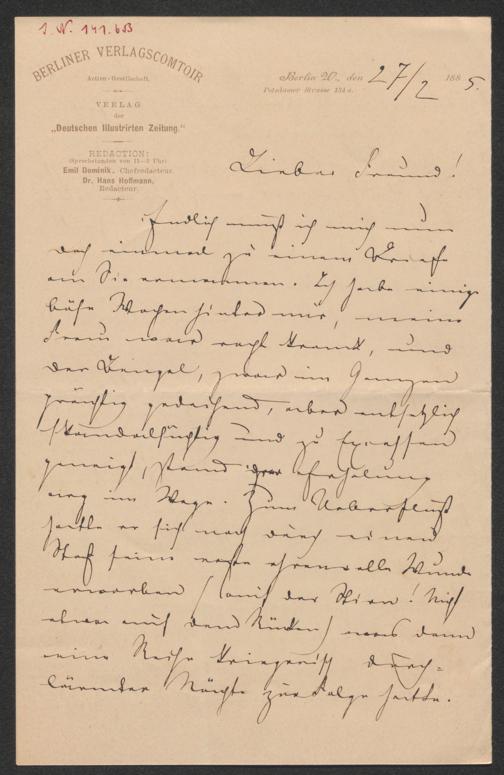 I. N. 141.653
BERLINER VERLAGSCOMTOIR
Actien-Gesellschaft.
VERLAG
der
„Deutschen Illustrirten Zeitung.“
REDACTION:
(Sprechstunden von 11—2 Uhr)
Emil Dominik, Chefredacteur.
Dr. Hans Hoffmann,
Redacteur.
Berlin W., den 27/2 1885.
Potsdamer Strasse
Lieber Freund!
Endlich muß ich mich nun
doch einmal zu einem Briefe
an Sie ermannen. Ich habe einige
böse Wochen hinter mir, meine
Frau war recht krank, und
der Bengel, zwar im Ganzen
prächtig gedeihend, aber entsetzlich
skandalsüchtig und zu Excessen
geneigt, stand der Erholung
arg im Wege. Zum Ueberfluß
hatte er sich noch durch einen
Stoß seine erste ehrenvolle Wunde
erworben (auf der Stirn! Nicht
etwa auf dem Rücken) was denn
eine Reihe kriegerisch durch-
lärmter Nächte zur Folge hatte.